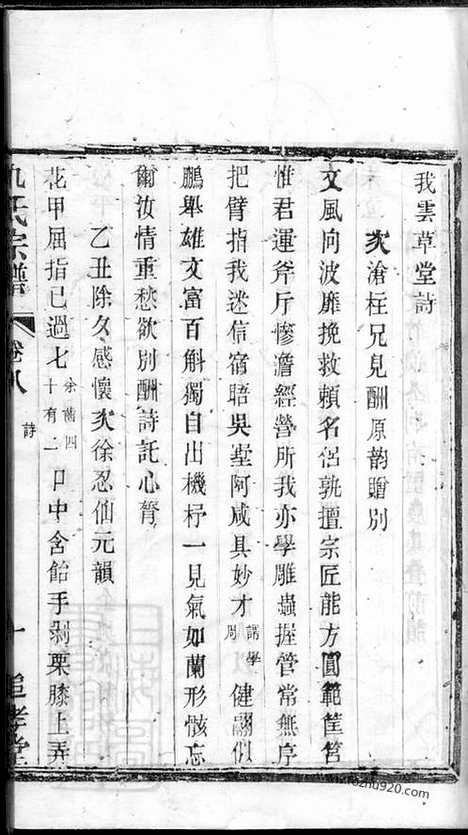 我雲草堂詩
次滄柱兄見酬原韵贈別
文風向波靡挽救賴名侶孰擅宗匠能方圓範筐筥
惟君運斧斤慘澹經營所我亦學雕蟲握管常無序
把臂指我迷信宿晤吳堂阿咸具妙才謂學周健翮們
鵬舉雄文富百斛獨自出機杼一見氣如蘭形骸忘
爾汝情重愁欲別酬詩託心膂
乙丑除夕感懷次徐忍仙元韻
花甲屈指已過七余齒四十有二口中含飴手剝栗膝上弄
仇氏宗譜 卷八 詩 十 追孝堂
zhu920.com